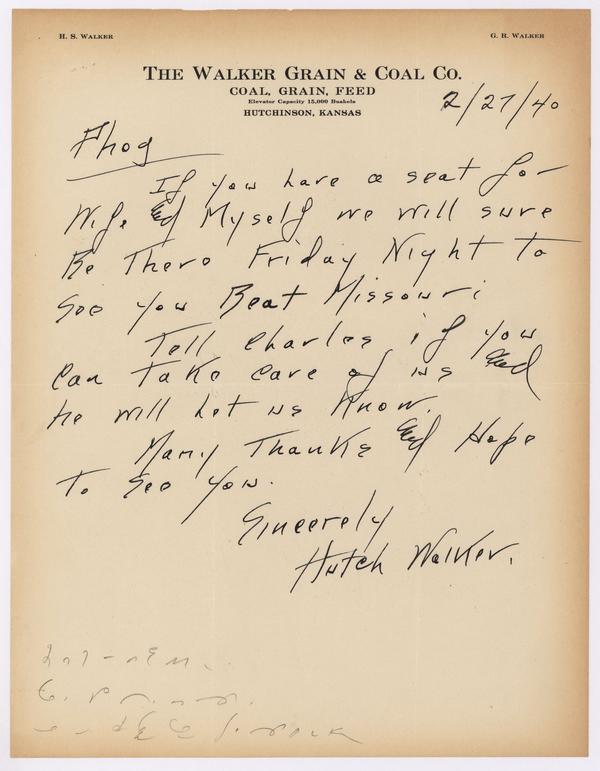 H. S. WALKER
G. R. WALKER
THE WALKER GRAIN & COAL CO.
COAL, GRAIN, FEED
Elevator Capacity 15,000 Bushels
HUTCHINSON, KANSAS
2/27/40
Phog
If you have a seat for
Wife and Myself we will sure
Be There Friday Night to
See you Beat Missouri
Tell Charles if you
Can Take Care of us and
he will let us Know.
Many Thanks and Hope
To See you.
Sincerely
Hutch Walker.